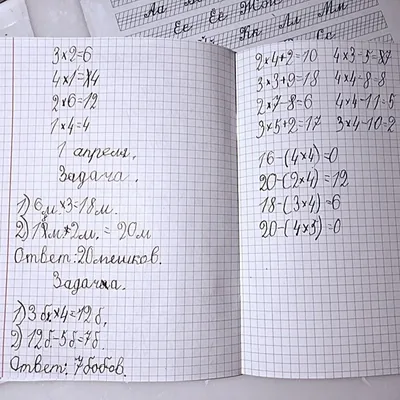 Аа
Ее Её Жж
Кк Лл Мм
Сс
3×2=6
4×1=4
2×6=12
1×4=4
1 апреля.
Задача.
1) 6м.×3=18м.
2) 18м+2м. = 20м
Ответ: 20мешков.
Задача.
1) 3б.×4=12б.
2) 12б-5б=7б.
Ответ: 7бобов.
2×4+2=10 4×3-5=7
3×3+9=18 4×4-8=8
2×7-8=6 4×4-11=5
3×5+2=17 3×4-10=2
16-(4×4)=0
20-(2×4)=12
18-(3×4)=6
20-(4×5)=0